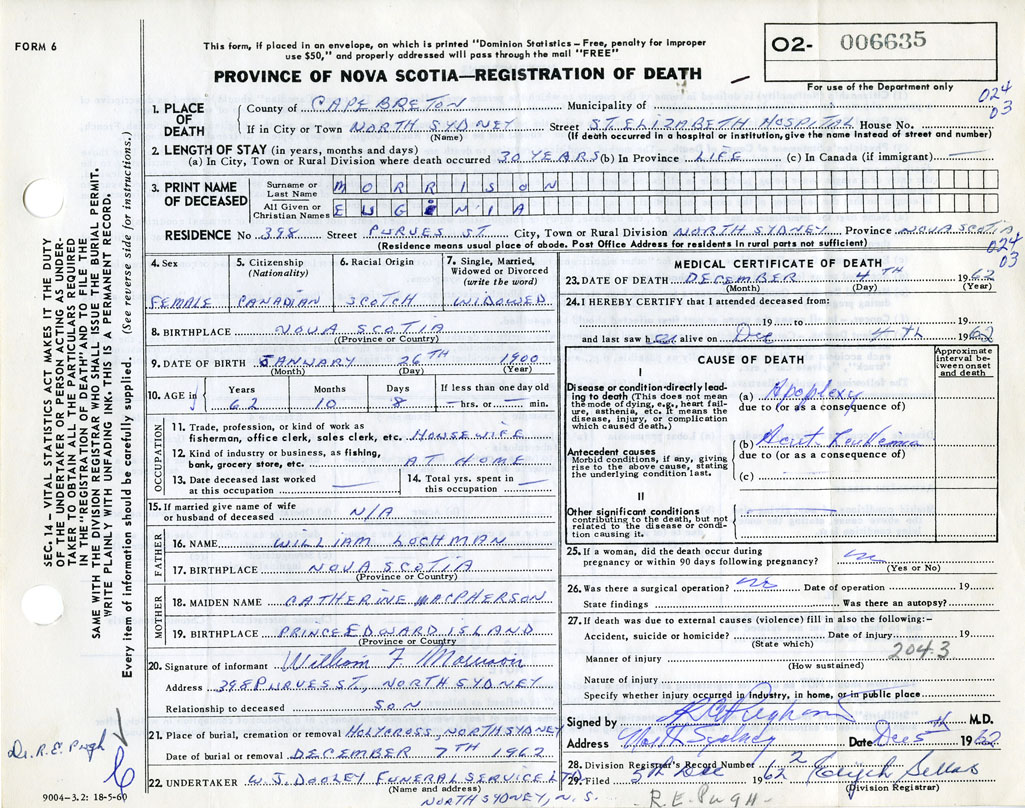 FORM 6
This form, if placed in an envelope, on which is printed "Dominion Statistics – Free, penalty for improper
use $50," and properly addressed will pass through the mail "FREE"
O2- 006635
For use of the Department only
PROVINCE OF NOVA SCOTIA—REGISTRATION OF DEATH
024
03
1. PLACE OF DEATH County of CAPE BRETON Municipality of
If in City or Town NORTH SYDNEY Street ST. ELIZABETH HOSPITAL House No.
(Name) (If death occurred in a hospital or institution, give the name instead of street and number)
2. LENGTH OF STAY (in years, months and days)
(a) In City, Town or Rural Division where death occurred 30 YEARS (b) In Province LIFE (c) In Canada (if immigrant)
3. PRINT NAME OF DECEASED Surname or Last Name MORRISON
All Given or Christian Names EUGENIA
RESIDENCE No 398 Street PURVES ST City, Town or Rural Division NORTH SYDNEY Province NOVA SCOTIA
(Residence means usual place of abode. Post Office Address for residents in rural parts not sufficient)
024
03
4. Sex 5. Citizenship (Nationality) 6. Racial Origin 7. Single, Married, Widowed or Divorced (write the word)
FEMALE CANADIAN SCOTCH WIDOWED
8. BIRTHPLACE NOVA SCOTIA
(Province or Country)
9. DATE OF BIRTH JANUARY 26TH 1900
(Month) (Day) (Year)
10. AGE in Years 62 Months 10 Days 8 If less than one day old — hrs. or — min.
OCCUPATION
11. Trade, profession, or kind of work as
fisherman, office clerk, sales clerk, etc. HOUSEWIFE
12. Kind of industry or business, as fishing,
bank, grocery store, etc. AT HOME
13. Date deceased last worked at this occupation
14. Total yrs. spent in this occupation
15. If married give name of wife
or husband of deceased N/A
FATHER
16. NAME WILLIAM LOCHMAN
17. BIRTHPLACE NOVA SCOTIA
(Province or Country)
MOTHER
18. MAIDEN NAME CATHERINE MACPHERSON
19. BIRTHPLACE PRINCE EDWARD ISLAND
(Province or Country)
20. Signature of informant William F Morrison
Address 398 PURVES ST, NORTH SYDNEY
Relationship to deceased SON
21. Place of burial, cremation or removal HOLYCROSS NORTH SYDNEY
Date of burial or removal DECEMBER 7TH 1962
22. UNDERTAKER W. J. DOOLEY FUNERAL SERVICE LTD
(Name and address)
NORTH SYDNEY, N. S.
MEDICAL CERTIFICATE OF DEATH
23. DATE OF DEATH DECEMBER 4TH 1962
(Month) (Day) (Year)
24. I HEREBY CERTIFY that I attended deceased from:
19 to 19
and last saw her alive on Dec 4th 1962
CAUSE OF DEATH
Approximate interval between onset and death
I
Disease or condition directly leading to death (This does not
mean the mode of dying, e.g., heart failure,
asthenia, etc. It means the
disease, injury, or complication
which caused death.)
(a) Apoplexy
due to (or as a consequence of)
Antecedent causes
Morbid conditions, if any, giving
rise to the above cause, stating
the underlying condition last.
(b) Acut Leukemia
due to (or as a consequence of)
(c)
II
Other significant conditions
contributing to the death, but not
related to the disease or condition
causing it.
25. If a woman, did the death occur during
pregnancy or within 90 days following pregnancy? no
(Yes or No)
26. Was there a surgical operation? no Date of operation 19
State findings Was there an autopsy?
27. If death was due to external causes (violence) fill in also the following:–
Accident, suicide or homicide? Date of injury 19
(State which)
204.3
Manner of injury
(How sustained)
Nature of injury
Specify whether injury occurred in industry, in home, or in public place
Signed by M.D.
Address North Sydney Date Dec 5th 1962
28. Division Registrar's Record Number 2
29. Filed 5th Dec 1962
(Division Registrar)
R.E. Pugh
SEC. 14 – VITAL STATISTICS ACT MAKES IT THE DUTY
OF THE UNDERTAKER OR PERSON ACTING AS UNDERTAKER
TO OBTAIN ALL THE PARTICULARS REQUIRED
IN THE "REGISTRATION OF DEATH" AND TO FILE THE
SAME WITH THE DIVISION REGISTRAR WHO SHALL ISSUE THE BURIAL PERMIT.
WRITE PLAINLY WITH UNFADING INK. THIS IS A PERMANENT RECORD.
Every item of information should be carefully supplied. (See reverse side for instructions.)
Dr. R.E. Pugh
9004–3.2: 18-5-60